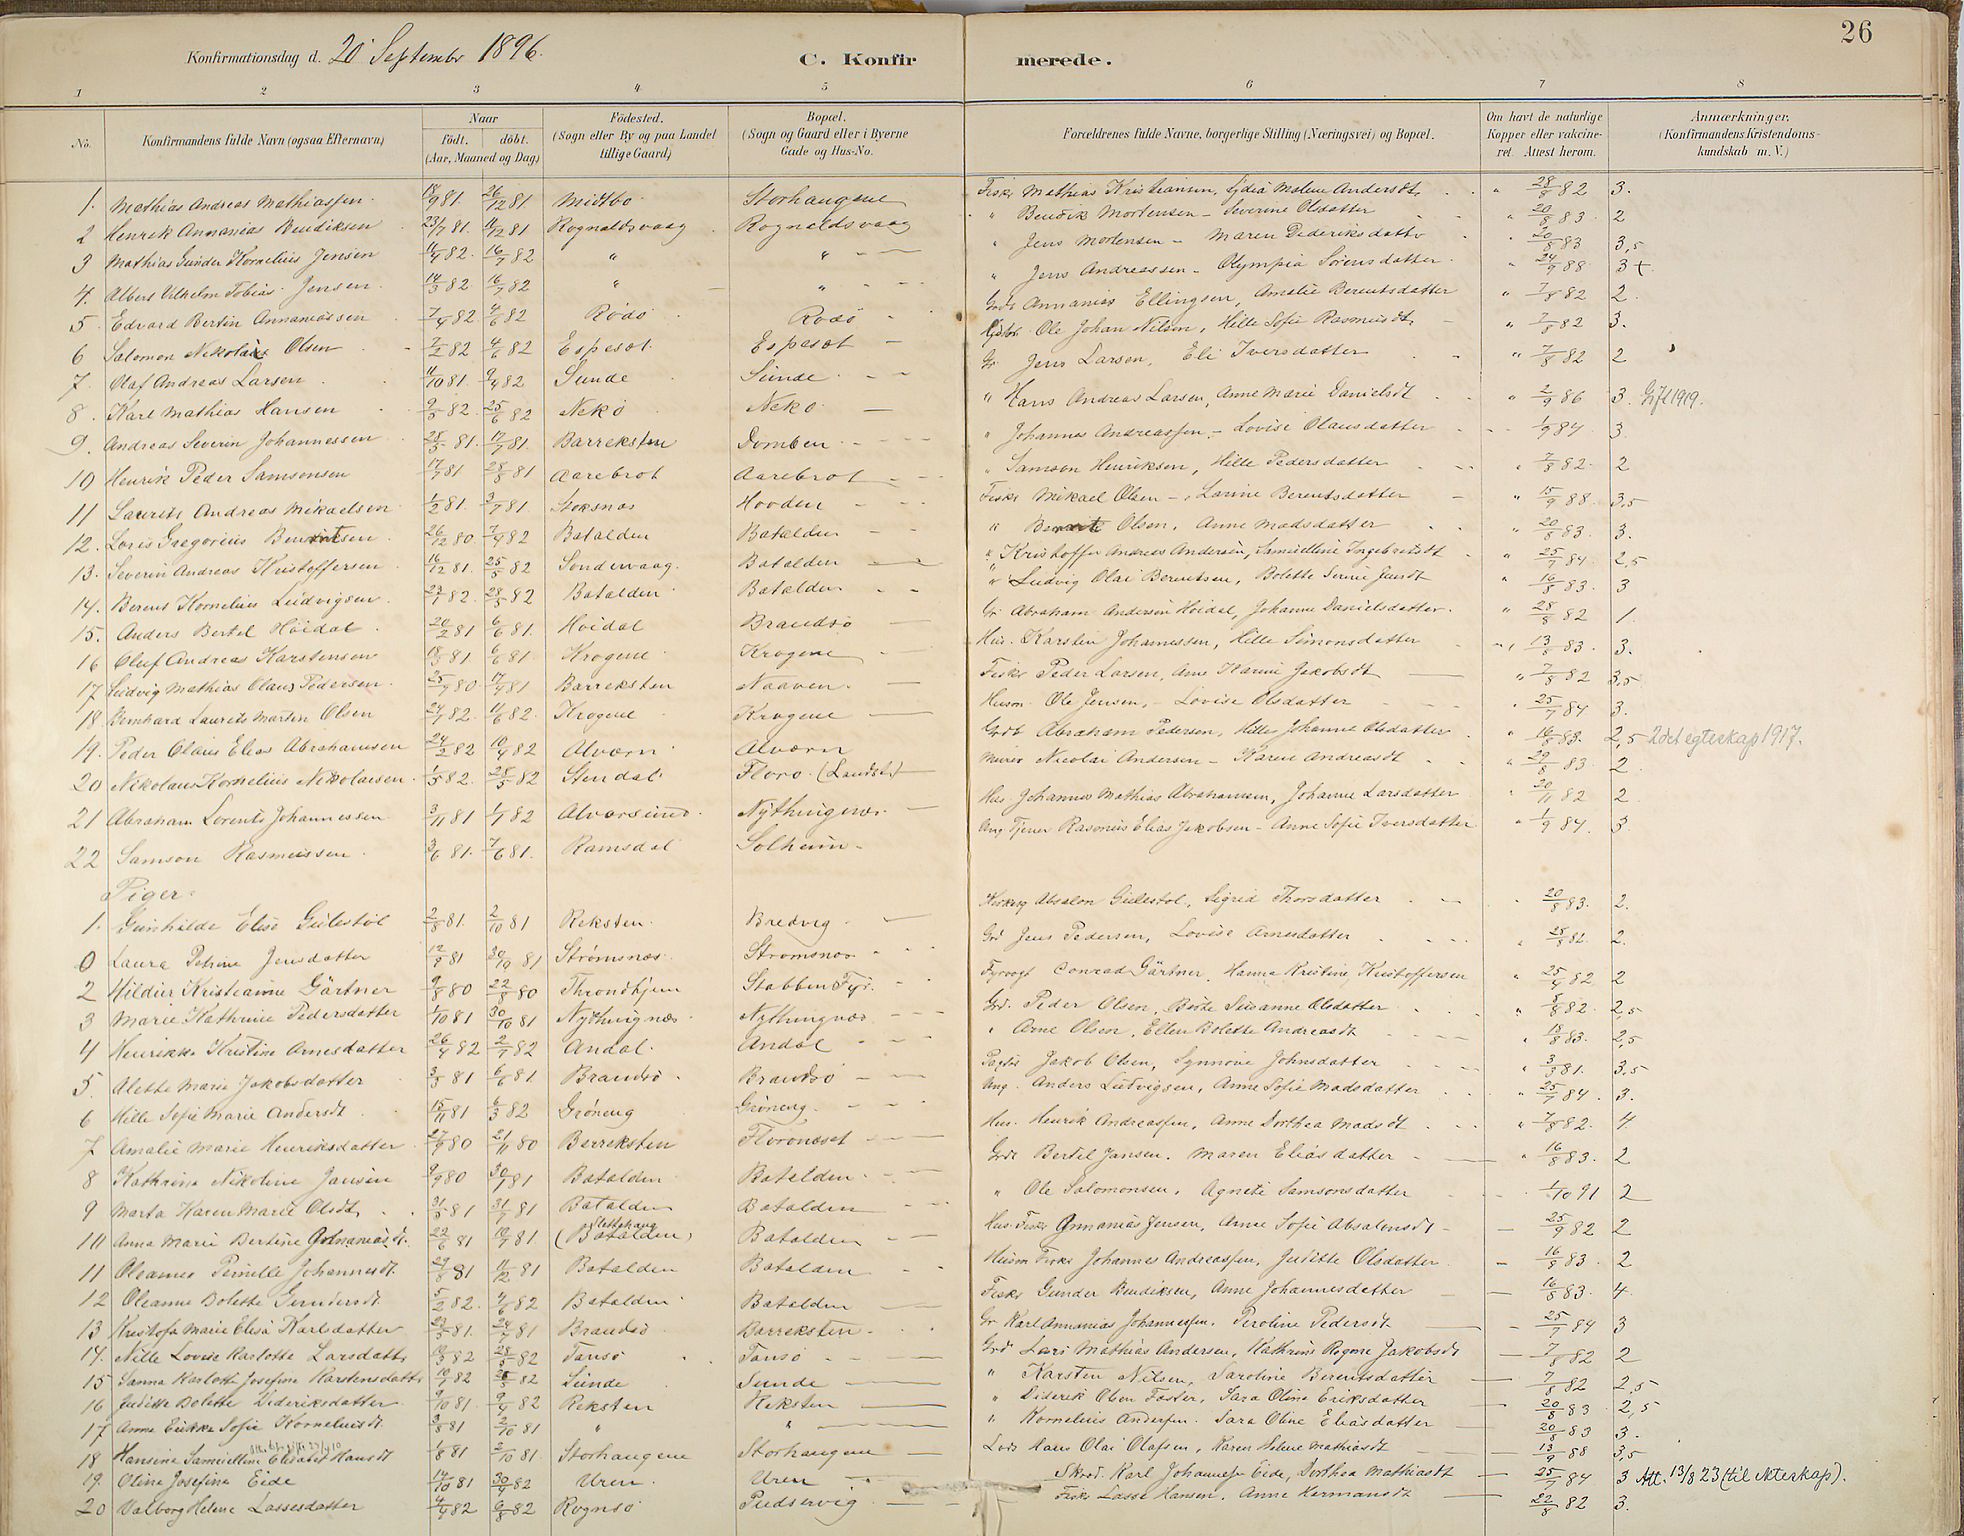 26
Konfirmationsdag d. 20 September 1896.
C. Konfirmerede.
1 2 3 4 5 6 7 8
No. Konfirmandens fulde Navn (ogsaa Efternavn) Naar født. døbt. (Aar, Maaned og Dag) Fødested. (Sogn eller By og paa Landet tillige Gaard) Bopæl. (Sogn og Gaard eller i Byerne Gade og Hus-No. Forældrenes fulde Navne, borgerlige Stilling (Næringsvei) og Bopæl. Om havt de naturlige Kopper eller vakcineret. Attest herom. Anmærkninger. (Konfirmandens Kristendomskundskab m. V.)
1. Mathias Andreas Mathiassen 18/9 81. 26/12 81 Midtbø Storhaugene Fisker Mathias Kristiansen, Lydia Malene Andersdt. " 28/8 82 3.
2 Henrik Annanias Bendiksen 23/7 81. 11/12 81 Rognaldsvaag Rognaldsvaag " Bendik Mortensen - Severine Olsdatter " 20/8 83. 2
3 Mathias Gunder Kornelius Jensen 11/4 82. 16/7 82 " " " Jens Mortensen - Maren Dideriksdatter " 20/8 83 3,5
4. Albert Vilhelm Tobias Jensen 14/3 82 16/7 82 " " " Jens Andreassen - Olympia Sørensdatter " 24/9 88 3+
5. Edvard Bertin Annaniassen 7/4 82 4/6 82 Rødø Rødø Grdr Annanias Ellingsen, Amalie Berentsdatter " 7/8 82 2.
6 Salomon Nikolai Olsen 7/2 82 4/6 82 Espeset Espeset Ole Johan Nilsen, Hille Sofie Rasmusdt. " 7/8 82 3.
7. Olaf Andreas Larsen 11/10 81. 9/4 82 Sunde Sunde Gr Jens Larsen, Eli Iversdatter " 7/8 82 2
8. Karl Mathias Hansen 9/5 82. 25/6 82 Nekø Nekø " Hans Andreas Larsen, Anne Marie Danielsdt " 2/9 86 3. Gift 1919.
9. Andreas Severin Johannessen 28/5 81. 17/7 81. Barreksten Domben " Johannes Andreassen - Lovise Olausdatter 1/9 84. 3.
10 Henrik Peder Samsonsen 17/7 81 28/8 81 Aarebrot Aarebrot " Samson Henriksen, Hille Pedersdatter " 7/8 82. 2
11 Laurits Andreas Mikaelsen 1/2 81. 3/7 81 Stoksnæs Hovden Fisker Mikael Olsen - Larine Berentsdatter " 15/9 88. 3,5
12. Loris Gregorius Berentsen 26/12 80 7/4 82 Batalden Batalden " Berent Olsen, Anne Madsdatter 20/8 83. 3.
13. Severin Andreas Kristoffersen 16/12 81. 25/5 82 Søndervaag. Batalden " Kristoffer Andreas Andersen, Samueline Ingebretsdt " 25/7 84. 2,5
14. Berent Kornelius Ludvigsen 22/1 82. 28/5 82 Batalden Batalden " Ludvig Olai Berentsen, Bolette Serine Jensdt " 16/8 83. 3
15. Anders Bertel Høidal 20/2 81 6/6 81. Høidal Brandsø Gr Abraham Andersen Høidal, Johanne Danielsdatter. " 28/8 82 1.
16 Oluf Andreas Karstensen 18/3 81 6/6 81. Krogene Krogene Hus. Karsten Johannessen, Hille Simonsdatter " 13/8 83. 3.
17. Ludvig Mathias Olaus Pedersen 25/9 80 17/4 81 Barreksten Naaven. Fisker Peder Larsen, Ane Karine Jakobsdt " 7/8 82 3,5
18. Bernhard Laurits Martin Olsen 24/1 82. 11/6 82. Krogene Krogene Husm. Ole Jensen, Lovise Olsdatter " 25/7 84 3.
19. Peder Olaus Elias Abrahamsen 24/2 82 10/4 82 Alværn Alværn Grdr Abraham Pedersen, Hille Johanne Olsdatter " 16/8 83. 2,5 2det egteskap 1917.
20 Nikolaus Kornelius Nikolaisen 1/5 82. 28/5 82 Stendal Florø (Landst) Murer Nicolai Andersen - Karen Andreasdt " 29/8 83. 2
21 Abraham Lorents Johannessen 3/11 81 1/1 82 Alværsund. Nythingnes. Hus. Johannes Mathias Abrahamsen, Johanne Larsdatter 20/11 82 2
22 Samson Rasmussen 3/6 81. 7/6 81. Ramsdal Solheim Ung. Tjener Rasmus Elias Jakobsen - Anne Sofie Iversdatter 1/9 84. 3.
Piger.
1. Gunhilde Elise Gulestøl 2/8 81. 2/10 81 Reksten. Bredvig. Absalon Gulestøl, Sigrid Thorsdatter 20/8 83. 2.
0 Laura Petrine Jensdatter 12/8 81 30/9 81 Strømsnæs. Strømsnæs Grd Jens Pedersen, Lovise Arnesdatter 25/8 82. 2.
2 Hildur Kristianne Gärtner 9/8 80 22/8 80 Throndhjem Stabben Fyr. Fyrvogt Conrad Gärtner, Hanna Kristine Kristoffersen 25/4 82 2
3 Marie Kathrine Pedersdatter 1/10 81 30/10 81 Nythingnæs Nythingnæs Grd. Peder Olsen, Berte Susanne Olsdatter 5/8 82. 2,5
4 Henrikke Kristine Arnesdatter 26/4 82 2/7 82 Andal. Andal " Arne Olsen, Ellen Bolette Andreasdt 18/8 83. 2,5
5. Alette Marie Jakobsdatter 3/5 81 6/6 81. Brandsø Brandsø Jakob Olsen, Synnove Johnsdatter 3/8 81. 3,5
6 Hille Sofie Marie Andersdt. 15/11 81 6/3 82 Grøneng Grøneng. Ung. Anders Ludvigsen, Anne Sofie Madsdatter " 25/7 84. 3.
7 Amalie Marie Henriksdatter 27/9 80 21/11 80 Berreksten Florøneset Hus. Henrik Andreassen, Anne Dorthea Madsdt " 7/8 82. 4
8 Kathrina Nikoline Jansen 9/9 80 30/1 81 Batalden Batalden. Grdr Bertil Jansen. Maren Eliasdatter " 16/8 83. 2
9 Marta Karen Marie Olsdt. 31/5 81 31/7 81 Batalden Batalden " Ole Salomonsen. Agnete Samsonsdatter 1/10 91 2
10 Anna Marie Bertine Annaniasdt. 22/6 81 10/7 81. Slettehaug (Batalden) Batalden Hus. Fisker Annanias Jensen, Anne Sofie Absalonsdt 25/9 82 2
11 Oleanna Pernille Johannesdt. 29/8 81 11/12 81 Batalden Batalden Husm Fisker Johannes Andreassen, Juditte Olsdatter 16/8 83. 2
12 Oleanne Bolette Gundersdt. 5/2 82. 4/6 82 Batalden Batalden Fisker Gunder Bendiksen, Anne Johannesdatter 16/8 83. 4.
13 Kristofa Marie Elisa Karlsdatter 23/5 81. 24/7 81 Brandsø Barreksten. Gr Karl Annanias Johannessen. Peroline Pedersdt 25/7 84 3
14. Nille Lovise Karlotte Larsdatter 19/3 82 28/5 82 Tansø Tansø Grd Lars Mathias Andersen, Kathrine Rogine Jakobsdt 7/8 82 2
15 Sanna Karlotte Josefine Karstensdatter 10/1 82 28/5 82 Sunde Sunde " Karsten Nilsen, Saroline Berentsdatter 7/8 82 2,5
16 Juditte Bolette Dideriksdatter 9/10 81. 9/4 82 Reksten Reksten " Diderik Olsen Foster, Sara Oline Eriksdatter 20/8 83 2,5
17 Anne Erikka Sofie Korneliusdt 3/8 81 2/10 81 " " " Kornelius Andersen. Sara Oline Eliasdatter 20/8 83 3.
18 Hansine Samueline Elisabet Hansdt 1/8 81 2/10 81. Storhaugene Storhaugene Lods Hans Olai Olafsen, Karen Helene Mathiasdt 13/9 88 3,5
19. Oline Josefine Eide 14/10 81 30/4 82 Uren. Uren Skrd. Karl Johannes Eide, Dorthea Mathiasdt 25/7 84 3 Att. 13/8 23 (til Ækteskap).
20 Valborg Helene Lassesdatter 4/4 82 6/8 82 Rognsø Pudservig Fisker Lasse Hansen. Anne Hermansdt 22/8 82 3.